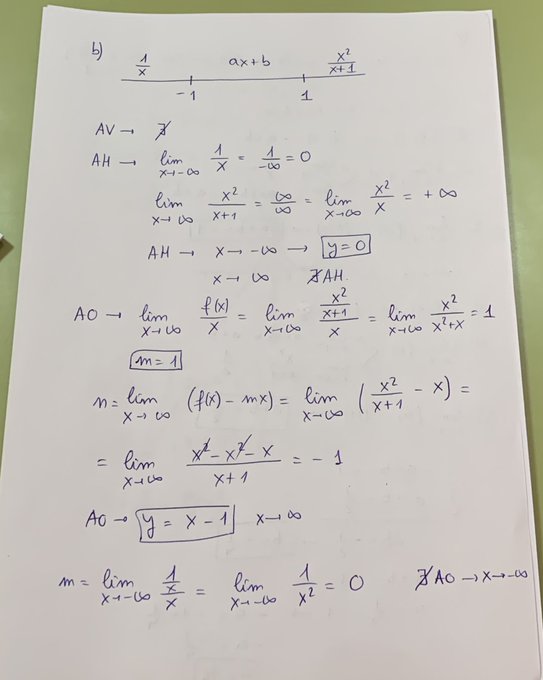 b)
1/x ax+b x²/(x+1)
-1 1
AV → ∄
AH → lim x→-∞ 1/x = 1/-∞ = 0
lim x→∞ x²/(x+1) = ∞/∞ = lim x→∞ x²/x = +∞
AH → x→-∞ → y=0
x→∞ ∄AH.
AO → lim x→∞ f(x)/x = lim x→∞ (x²/(x+1))/x = lim x→∞ x²/(x²+x) = 1
m=1
n = lim x→∞ (f(x) - mx) = lim x→∞ (x²/(x+1) - x) =
= lim x→∞ (x² - x² - x)/(x+1) = -1
AO → y = x-1 x→∞
m = lim x→-∞ (1/x)/x = lim x→-∞ 1/x² = 0 ∄AO → x→-∞